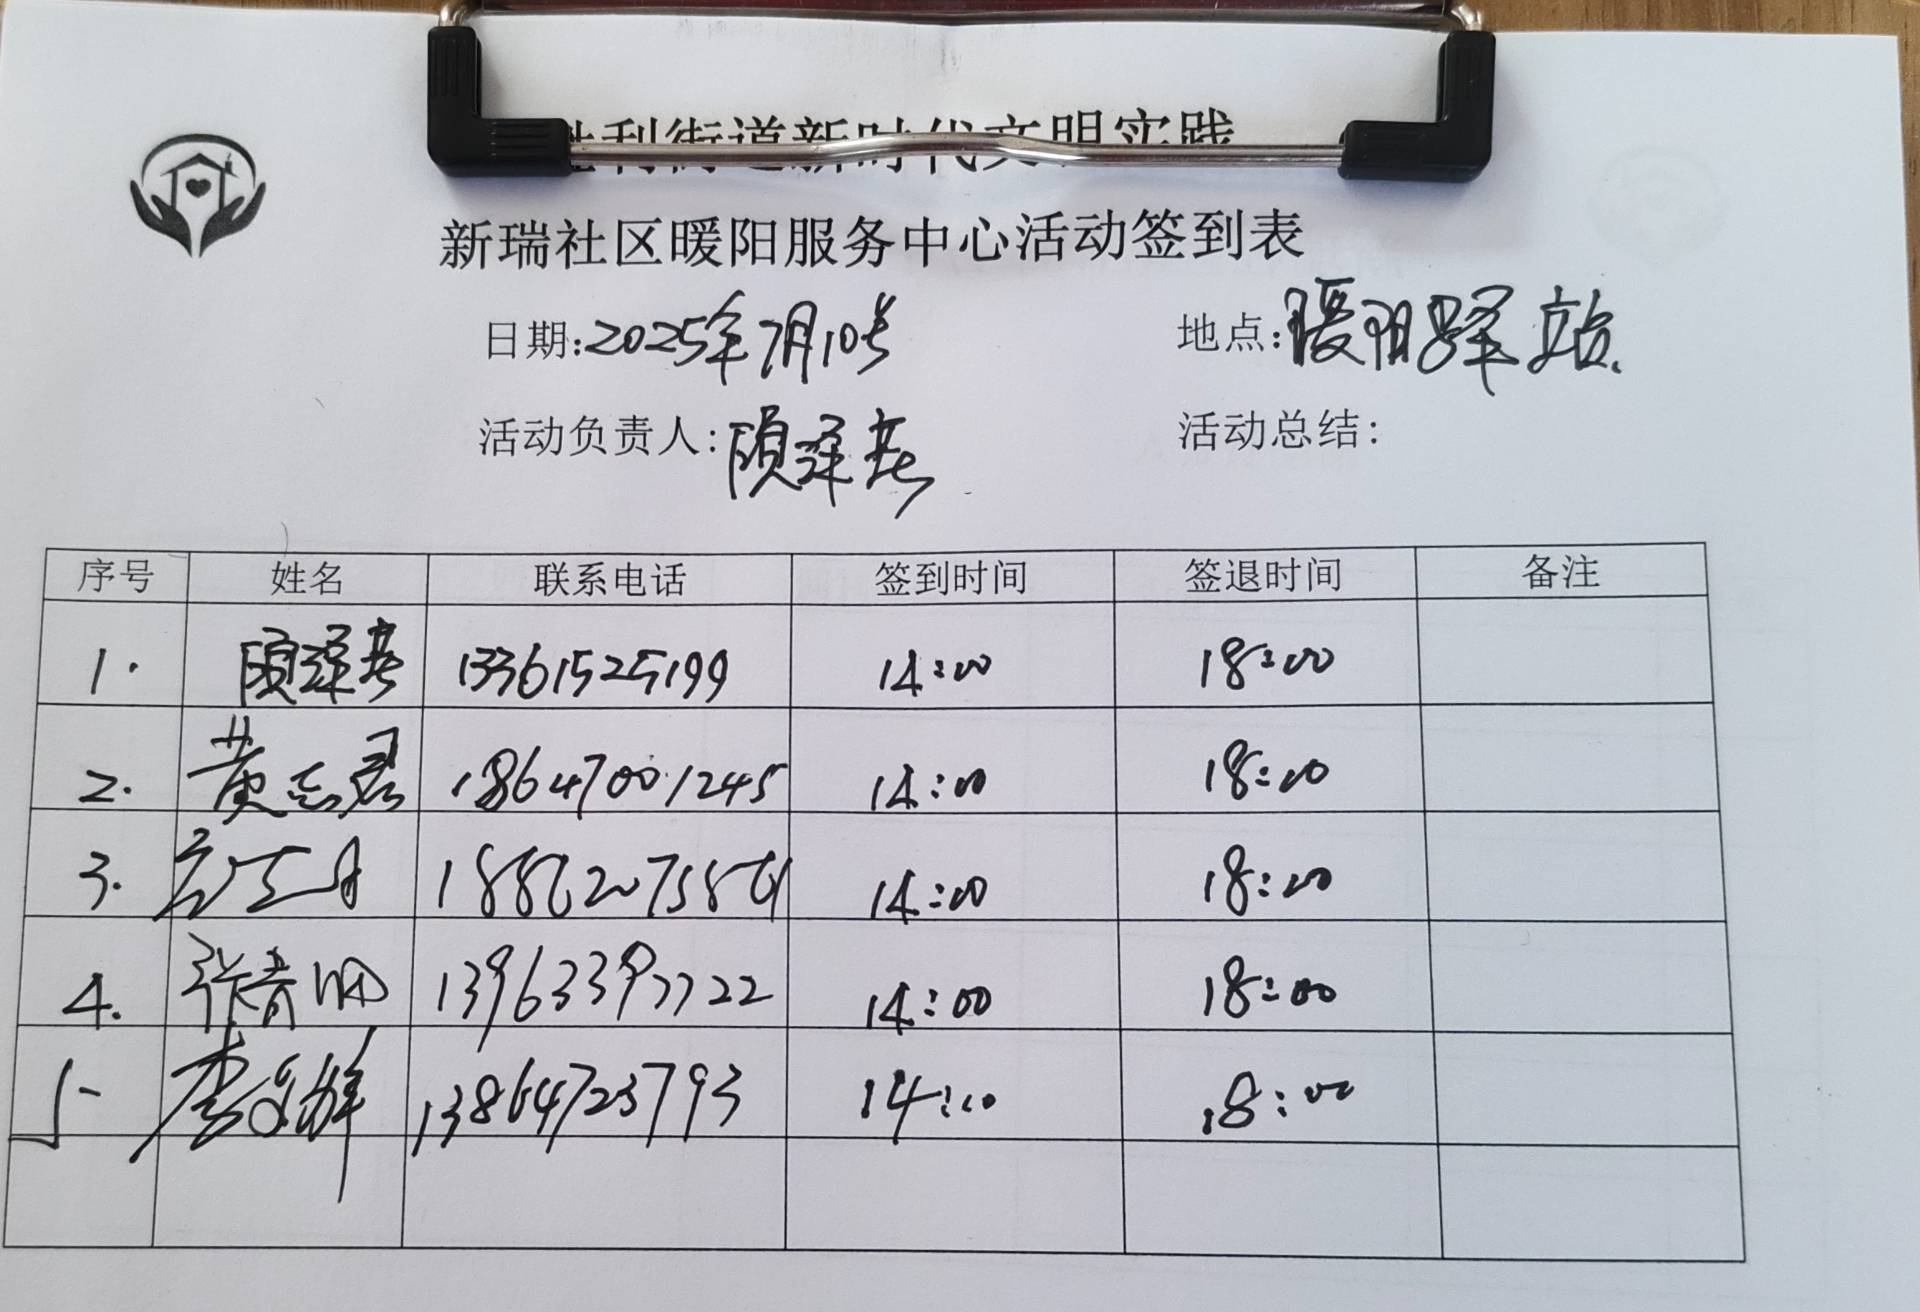 胜利街道新时代文明实践
新瑞社区暖阳服务中心活动签到表
日期:2025年7月10号 地点:暖阳驿站
活动负责人: 活动总结:
序号 姓名 联系电话 签到时间 签退时间 备注
1. 13361525199 14:00 18:00
2. 黄志君 18647001245 14:00 18:00
3. 14:00 18:00
4. 14:00 18:00
5. 13864723793 14:00 18:00